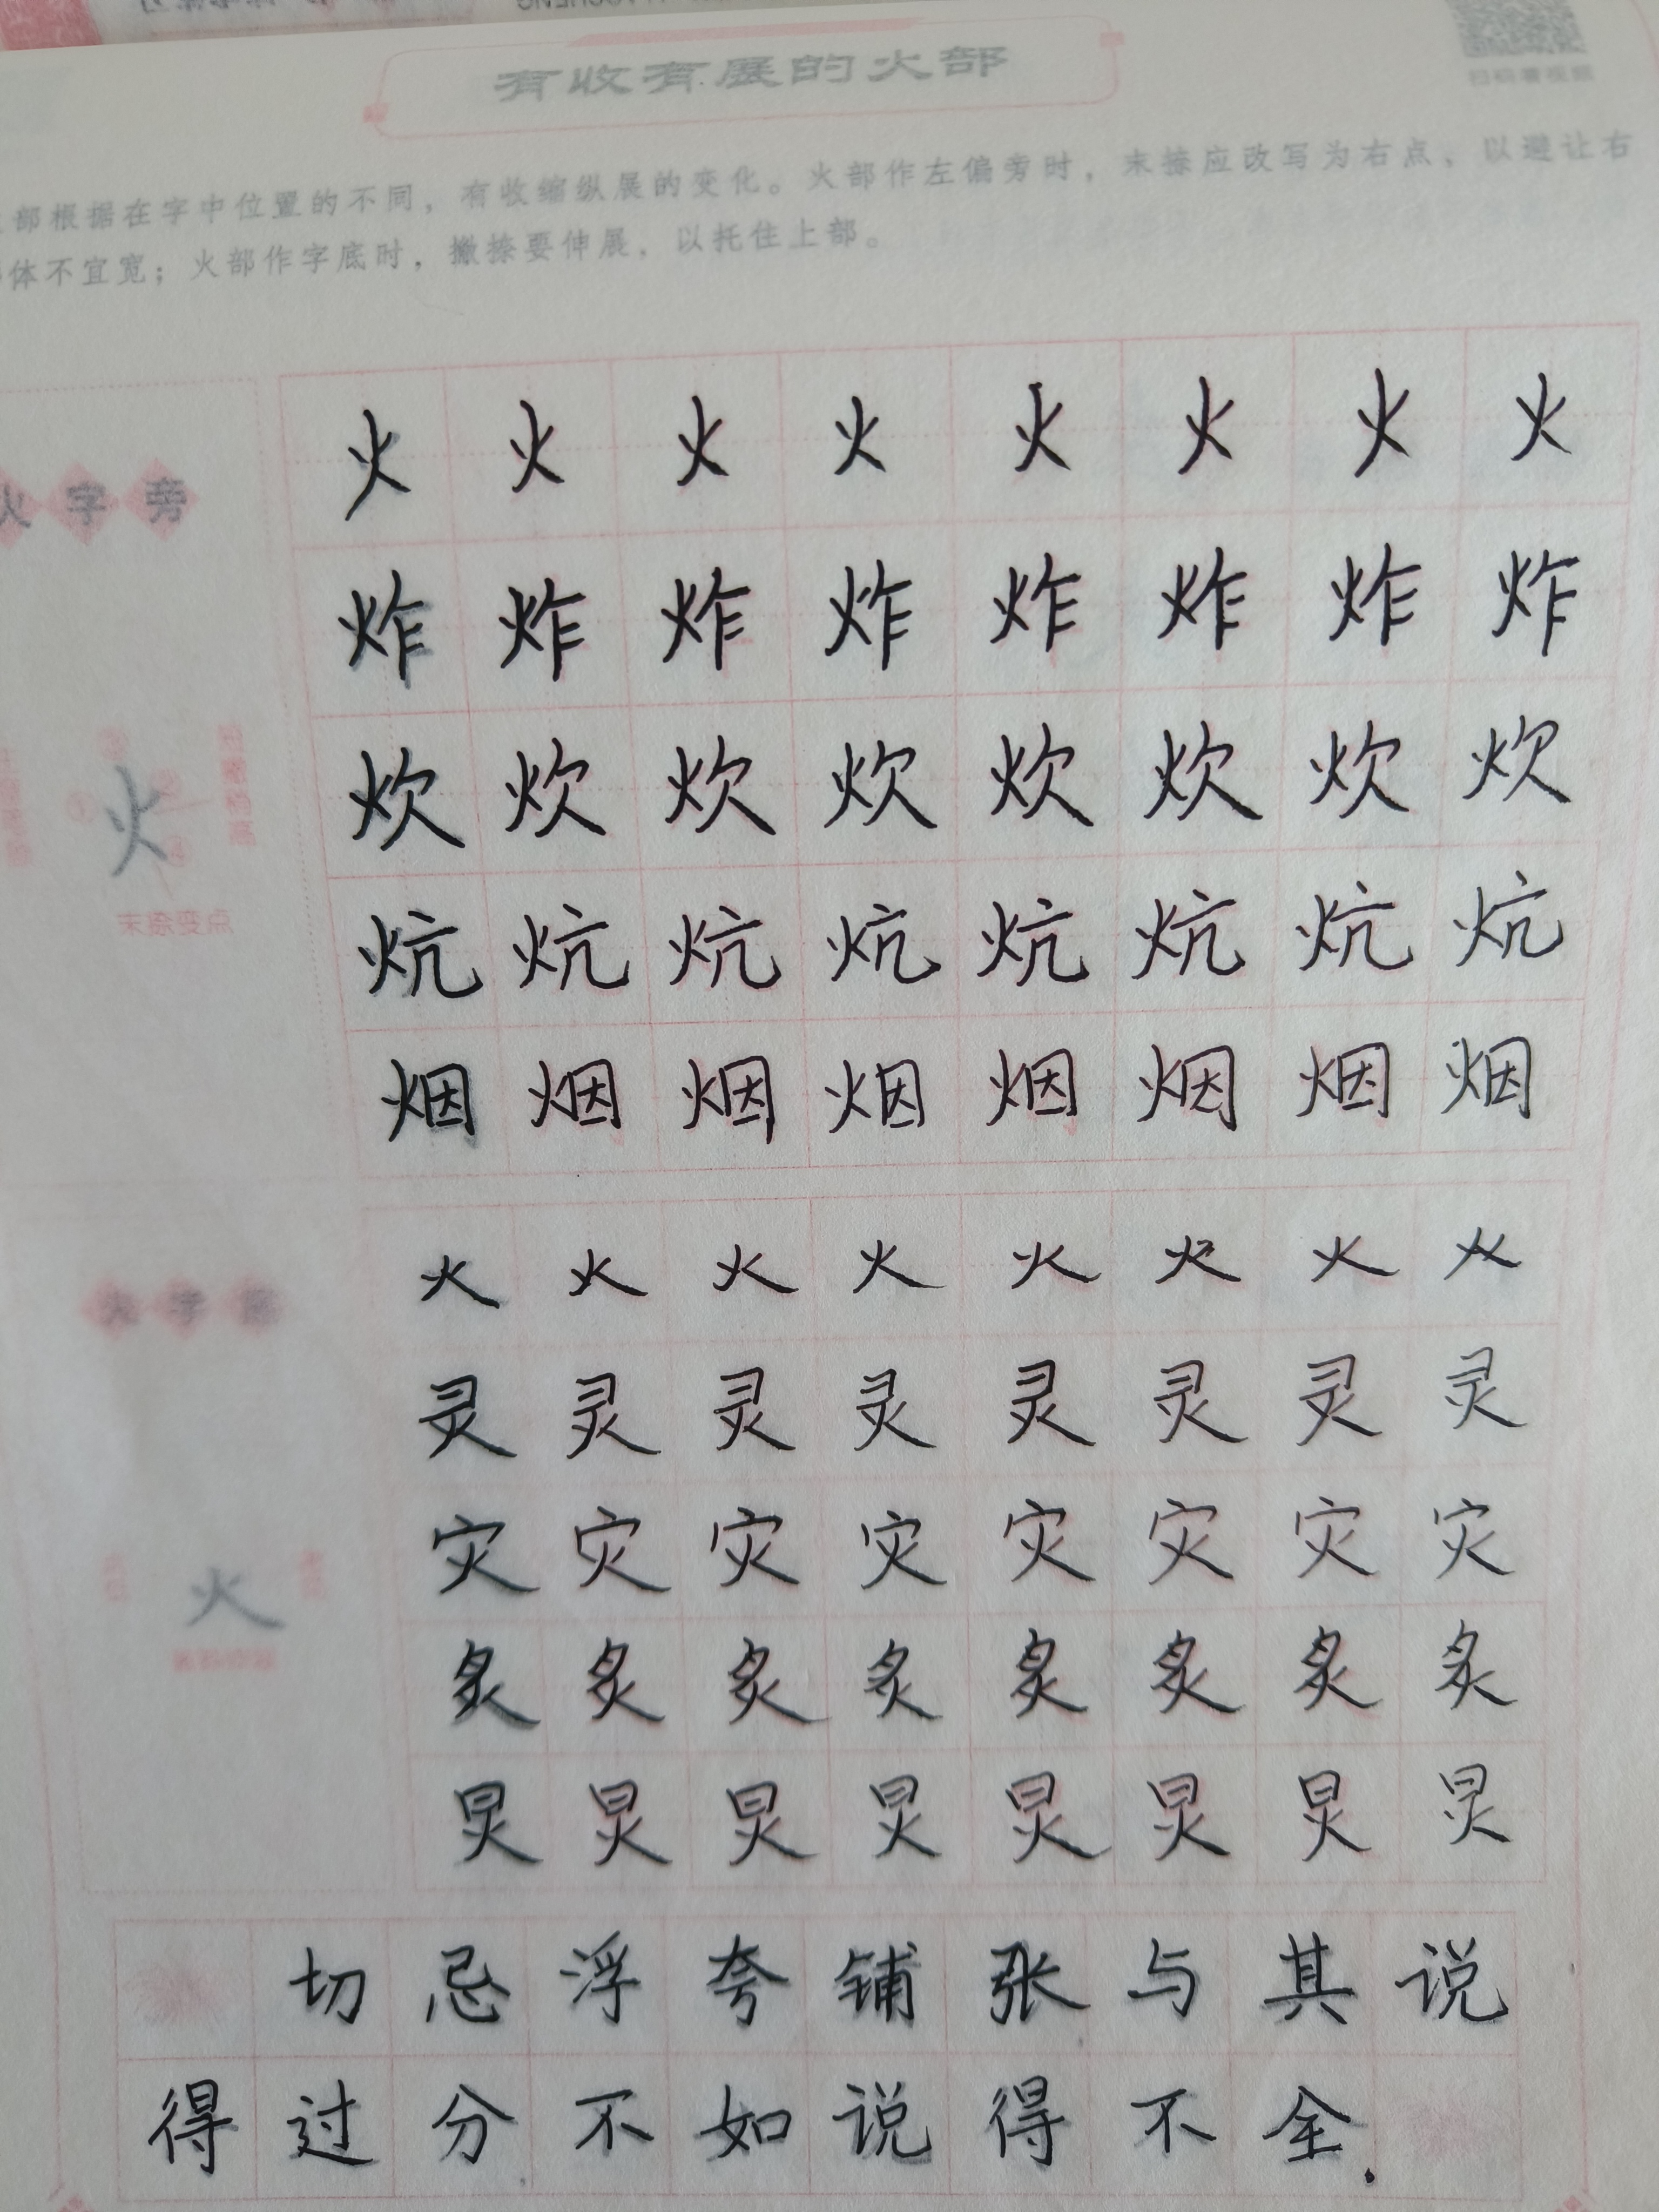 有收有展的火部
扫码看视频
部根据在字中位置的不同，有收缩纵展的变化。火部作左偏旁时，末捺应改写为右点，以避让右
体不宜宽；火部作字底时，撇捺要伸展，以托住上部。
火字旁
火火火火火火火火
炸炸炸炸炸炸炸炸
炊炊炊炊炊炊炊炊
火
末捺变点
炕炕炕炕炕炕炕炕
烟烟烟烟烟烟烟烟
火字底
火火火火火火火火
灵灵灵灵灵灵灵灵
灾灾灾灾灾灾灾灾
火
炙炙炙炙炙炙炙炙
炅炅炅炅炅炅炅炅
切忌浮夸铺张与其说
得过分不如说得不全.